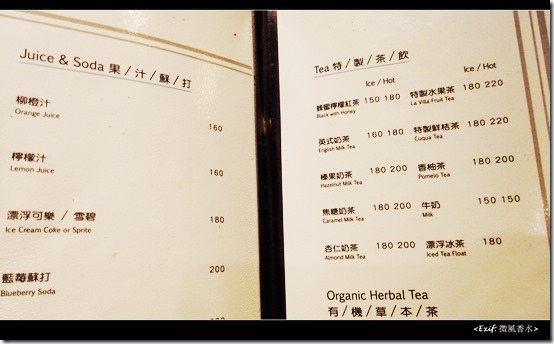 Juice & Soda 果/汁/蘇/打
柳橙汁
Orange Juice
160
檸檬汁
Lemon Juice
160
漂浮可樂 / 雪碧
Ice Cream Coke or Sprite
180
藍莓蘇打
Blueberry Soda
200
Tea 特/製/茶/飲
Ice / Hot
Ice / Hot
蜂蜜檸檬紅茶 150 180
Black with Honey
特製水果茶 180 220
La Villa Fruit Tea
英式奶茶 160 180
English Milk Tea
特製鮮桔茶 180 220
Cuqua Tea
榛果奶茶 180 200
Hazelnut Milk Tea
香柚茶 180 200
Pomelo Tea
焦糖奶茶 180 200
Caramel Milk Tea
牛奶 150 150
Milk
杏仁奶茶 180 200
Almond Milk Tea
漂浮冰茶 180
Iced Tea Float
Organic Herbal Tea
有/機/草/本/茶
<Exif: 微風香水>